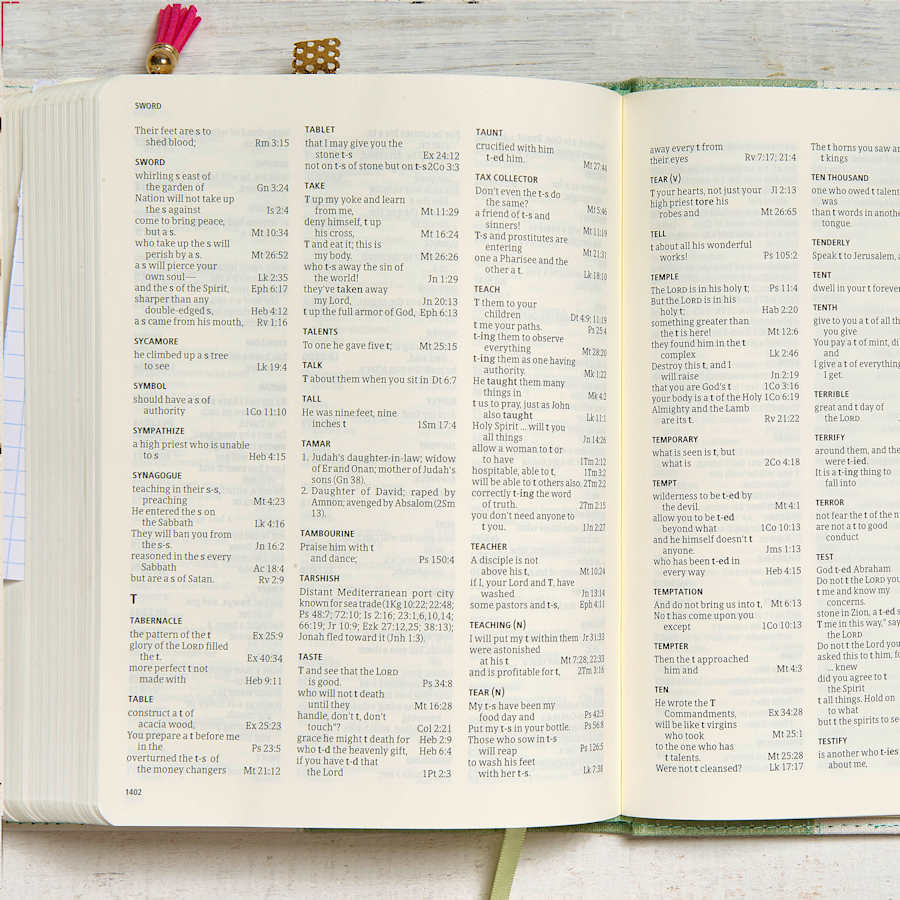 SWORD
Their feet are s to
shed blood; Rm 3:15
SWORD
whirling s east of
the garden of Gn 3:24
Nation will not take up
the s against Is 2:4
come to bring peace,
but a s. Mt 10:34
who take up the s will
perish by a s. Mt 26:52
a s will pierce your
own soul— Lk 2:35
and the s of the Spirit, Eph 6:17
sharper than any
double-edged s, Heb 4:12
a s came from his mouth, Rv 1:16
SYCAMORE
he climbed up a s tree
to see Lk 19:4
SYMBOL
should have a s of
authority 1Co 11:10
SYMPATHIZE
a high priest who is unable
to s Heb 4:15
SYNAGOGUE
teaching in their s-s,
preaching Mt 4:23
He entered the s on
the Sabbath Lk 4:16
They will ban you from
the s-s. Jn 16:2
reasoned in the s every
Sabbath Ac 18:4
but are a s of Satan. Rv 2:9
T
TABERNACLE
the pattern of the t Ex 25:9
glory of the LORD filled
the t. Ex 40:34
more perfect t not
made with Heb 9:11
TABLE
construct a t of
acacia wood, Ex 25:23
You prepare a t before me
in the Ps 23:5
overturned the t-s of
the money changers Mt 21:12
1402
TABLET
that I may give you the
stone t-s Ex 24:12
not on t-s of stone but on t-s 2Co 3:3
TAKE
T up my yoke and learn
from me, Mt 11:29
deny himself, t up
his cross, Mt 16:24
T and eat it; this is
my body. Mt 26:26
who t-s away the sin of
the world! Jn 1:29
they've taken away
my Lord, Jn 20:13
t up the full armor of God, Eph 6:13
TALENTS
To one he gave five t; Mt 25:15
TALK
T about them when you sit in Dt 6:7
TALL
He was nine feet, nine
inches t 1Sm 17:4
TAMAR
1. Judah's daughter-in-law; widow
of Er and Onan; mother of Judah's
sons (Gn 38).
2. Daughter of David; raped by
Amnon; avenged by Absalom (2Sm
13).
TAMBOURINE
Praise him with t
and dance; Ps 150:4
TARSHISH
Distant Mediterranean port city
known for sea trade (1Kg 10:22; 22:48;
Ps 48:7; 72:10; Is 2:16; 23:1,6,10,14;
66:19; Jr 10:9; Ezk 27:12,25; 38:13);
Jonah fled toward it (Jnh 1:3).
TASTE
T and see that the LORD
is good. Ps 34:8
who will not t death
until they Mt 16:28
handle, don't t, don't
touch"? Col 2:21
grace he might t death for Heb 2:9
who t-d the heavenly gift, Heb 6:4
if you have t-d that
the Lord 1Pt 2:3
TAUNT
crucified with him
t-ed him. Mt 27:44
TAX COLLECTOR
Don't even the t-s do
the same? Mt 5:46
a friend of t-s and
sinners! Mt 11:19
T-s and prostitutes are
entering Mt 21:31
one a Pharisee and the
other a t. Lk 18:10
TEACH
T them to your
children Dt 4:9; 11:19
t me your paths. Ps 25:4
t-ing them to observe
everything Mt 28:20
t-ing them as one having
authority. Mk 1:22
He taught them many
things in Mk 4:2
t us to pray, just as John
also taught Lk 11:1
Holy Spirit ... will t you
all things Jn 14:26
allow a woman to t or
to have 1Tm 2:12
hospitable, able to t, 1Tm 3:2
will be able to t others also. 2Tm 2:2
correctly t-ing the word
of truth. 2Tm 2:15
you don't need anyone to
t you. 1Jn 2:27
TEACHER
A disciple is not
above his t, Mt 10:24
if I, your Lord and T, have
washed Jn 13:14
some pastors and t-s, Eph 4:11
TEACHING (N)
I will put my t within them Jr 31:33
were astonished
at his t Mt 7:28; 22:33
and is profitable for t, 2Tm 3:16
TEAR (N)
My t-s have been my
food day and Ps 42:3
Put my t-s in your bottle. Ps 56:8
Those who sow in t-s
will reap Ps 126:5
to wash his feet
with her t-s. Lk 7:38
away every t from
their eyes Rv 7:17; 21:4
TEAR (V)
T your hearts, not just your Jl 2:13
high priest tore his
robes and Mt 26:65
TELL
t about all his wonderful
works! Ps 105:2
TEMPLE
The LORD is in his holy t; Ps 11:4
But the LORD is in his
holy t; Hab 2:20
something greater than
the t is here! Mt 12:6
they found him in the t
complex Lk 2:46
Destroy this t, and I
will raise Jn 2:19
that you are God's t 1Co 3:16
your body is a t of the Holy 1Co 6:19
Almighty and the Lamb
are its t. Rv 21:22
TEMPORARY
what is seen is t, but
what is 2Co 4:18
TEMPT
wilderness to be t-ed by
the devil. Mt 4:1
allow you to be t-ed
beyond what 1Co 10:13
and he himself doesn't t
anyone. Jms 1:13
who has been t-ed in
every way Heb 4:15
TEMPTATION
And do not bring us into t, Mt 6:13
No t has come upon you
except 1Co 10:13
TEMPTER
Then the t approached
him and Mt 4:3
TEN
He wrote the T
Commandments, Ex 34:28
will be like t virgins
who took Mt 25:1
to the one who has
t talents. Mt 25:28
Were not t cleansed? Lk 17:17
The t horns you saw an
t kings
TEN THOUSAND
one who owed t talent
was
than t words in anothe
tongue.
TENDERLY
Speak t to Jerusalem, a
TENT
dwell in your t forever
TENTH
give to you a t of all th
you give
You pay a t of mint, di
and
I give a t of everything
I get.
TERRIBLE
great and t day of
the LORD
TERRIFY
around them, and the
were t-ied.
It is a t-ing thing to
fall into
TERROR
not fear the t of the n
are not a t to good
conduct
TEST
God t-ed Abraham
Do not t the LORD you
t me and know my
concerns.
stone in Zion, a t-ed s
T me in this way," say
the LORD
Do not t the Lord you
asked this to t him, fo
... knew
did you agree to t
the Spirit
t all things. Hold on
to what
but t the spirits to se
TESTIFY
is another who t-ies
about me,